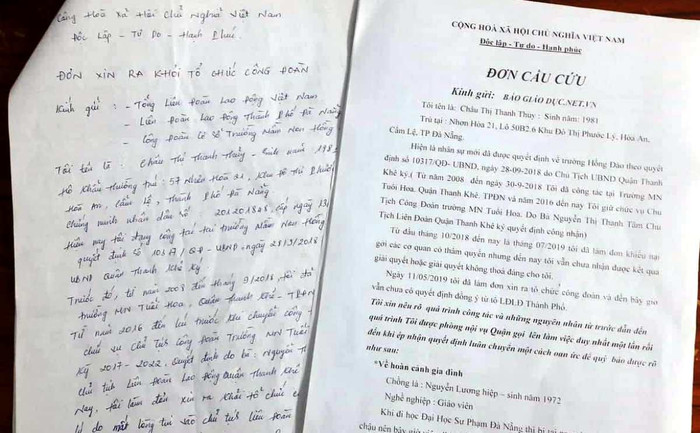 Cộng Hoà Xã Hội Chủ Nghĩa Việt Nam
Độc Lập - Tự Do - Hạnh Phúc.
ĐƠN XIN RA KHỎI TỔ CHỨC CÔNG ĐOÀN
Kính gửi : - Tổng Liên Đoàn Lao Động Việt Nam
- Liên Đoàn Lao Động Thành Phố Đà Nẵng
- Công Đoàn Cơ Sở Trường Mầm Non Hồng
Tôi tên là : Châu Thị Thanh Thủy - Sinh năm 198
Hộ khẩu thường trú : 57 Nhơn Hòa 21, Khu Đô Thị Phước
Hòa An, Cẩm Lệ, Thành Phố Đà Nẵng
Chứng minh nhân dân số cấp ngày 13/
Hiện nay tôi đang công tác tại trường Mầm Non Hồng
quyết định số QĐ - UBND, ngày 28/9/2018
UBND Quận Thanh Khê ký
Trước đó, từ năm 2008 đến tháng 9/2018 tôi đã
trường MN Tuổi Hoa, Quận Thanh Khê - TPĐN
Từ năm 2016 đến lúc trước khi chuyển công
chức vụ Chủ Tịch Công Đoàn Trường MN Tuổi
Kỳ 2017 - 2022, quyết định do bà : Nguyễn Th
chủ tịch Liên Đoàn Lao Động Quận Thanh Khê
Nay, tôi làm đơn xin ra khỏi tổ chức c
lý do mất lòng tin vào chủ tịch liên đoàn
CỘNG HOÀ XÃ HỘI CHỦ NGHĨA VIỆT NAM
Độc lập - Tự do - Hạnh phúc
ĐƠN CẦU CỨU
Kính gửi: BÁO GIÁO DỤC.NET.VN
Tôi tên là: Châu Thị Thanh Thủy : Sinh năm: 1981
Trú tại : Nhơn Hòa 21, Lô 50B2 6 Khu Đô Thị Phước Lý, Hòa An,
Cẩm Lệ, TP Đà Nẵng.
Hiện là nhân sự mới đã được quyết định về trường Hồng Đào theo quyết
định số 10317/QĐ- UBND, ngày 28-09-2018 do Chủ Tịch UBND Quận Thanh
Khê ký.( Từ năm 2008 đến ngày 30-9-2018 Tôi đã công tác tại Trường MN
Tuổi Hoa. Quận Thanh Khê. TPĐN và năm 2016 đến nay Tôi giữ chức vụ Chủ
Tịch Công Đoàn trường MN Tuổi Hoa. Do Bà Nguyễn Thị Thanh Tâm Chủ
Tịch Liên Đoàn Quận Thanh Khê ký quyết định công nhận)
Từ đầu tháng 10/2018 đến nay là tháng 07/2019 tôi đã làm đơn khiếu nại
gởi các cơ quan có thẩm quyền nhưng đến nay tôi vẫn chưa nhận được kết quả
giải quyết hoặc giải quyết không thoả đáng cho tôi.
Ngày 11/05/2019 tôi đã làm đơn xin ra tổ chức công đoàn và đến bây giờ
vẫn chưa có quyết định đồng ý từ tổ LĐLĐ Thành Phố.
Tôi xin nêu rõ quá trình công tác và những nguyên nhân từ trước dẫn đến
quá trình Tôi được phòng nội vụ Quận gọi lên làm việc duy nhất một lần rồi
đến khi ép nhận quyết định luân chuyển một cách oan ức để quý báo được rõ
như sau:
*Về hoàn cảnh gia đình
Chồng là : Nguyễn Lương hiệp – sinh năm 1972
Nghề nghiệp : Giáo viên
Khi đi học Đại Học Sư Phạm Đà Nẵng thì bị tai